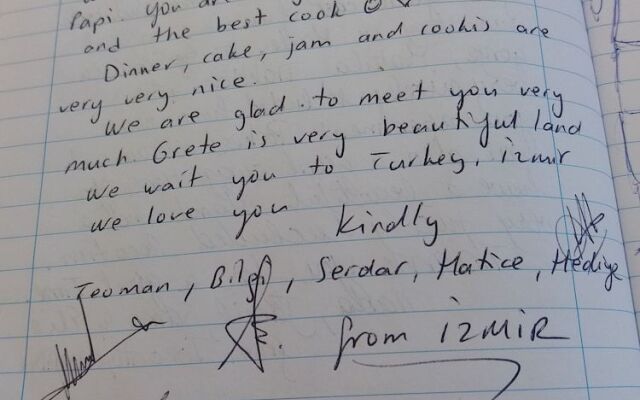 Papi. You
and the best cook
Dinner, cake, jam and cookis are
very very nice.
We are glad to meet you very
much Grete is very beautiful land
we wait you to Turkey, izmir
we love you
kindly
Teoman, Bilgi, Serdar, Hatice, Hediye
from izmiR